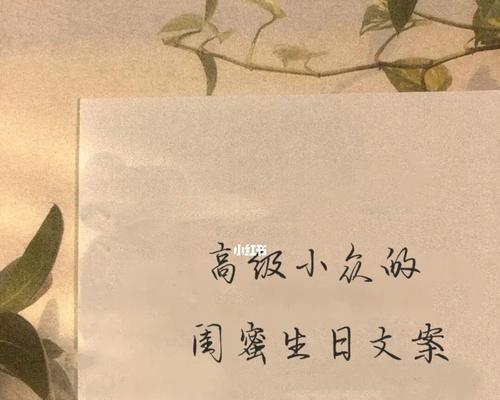 小红书
高级小众的
闺蜜生日文案